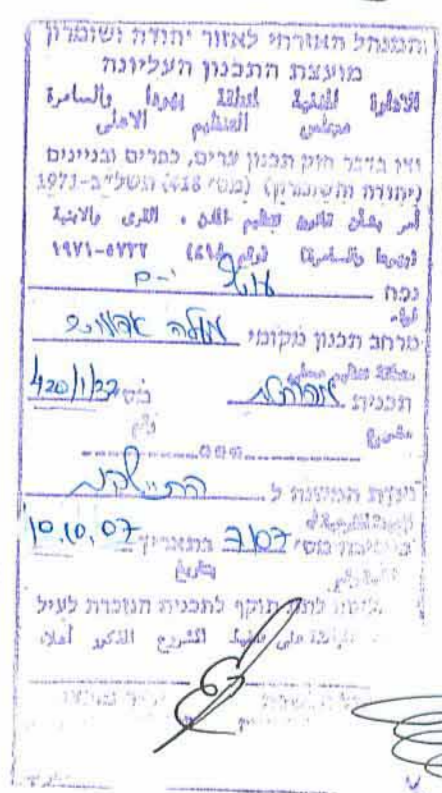 המנהל האזרחי לאזור יהודה ושומרון
מועצת התכנון העליונה
الادارة المدنية لمنطقة يهودا والسامرة
مجلس التنظيم الاعلى
צו בדבר חוק תכנון ערים, כפרים ובניינים
(יהודה והשומרון) (מס׳ 418) תשל״ב-1971
أمر بشأن قانون تنظيم المدن، القرى والابنية
(يهودا والسامرة) (رقم ٤١٨) ٥٧٣٢-١٩٧١
נפה
מרחב תכנון מקומי מעלה אדומים
תכנית מס׳ 420/1/22
مشروع رقم
ועדת המשנה ל התיישבות
בישיבה מס׳ 7/07 בתאריך 10.10.07
بتاريخ
לתת תוקף לתכנית הנזכרת לעיל
على تنفيذ المشروع المذكور أعلاه